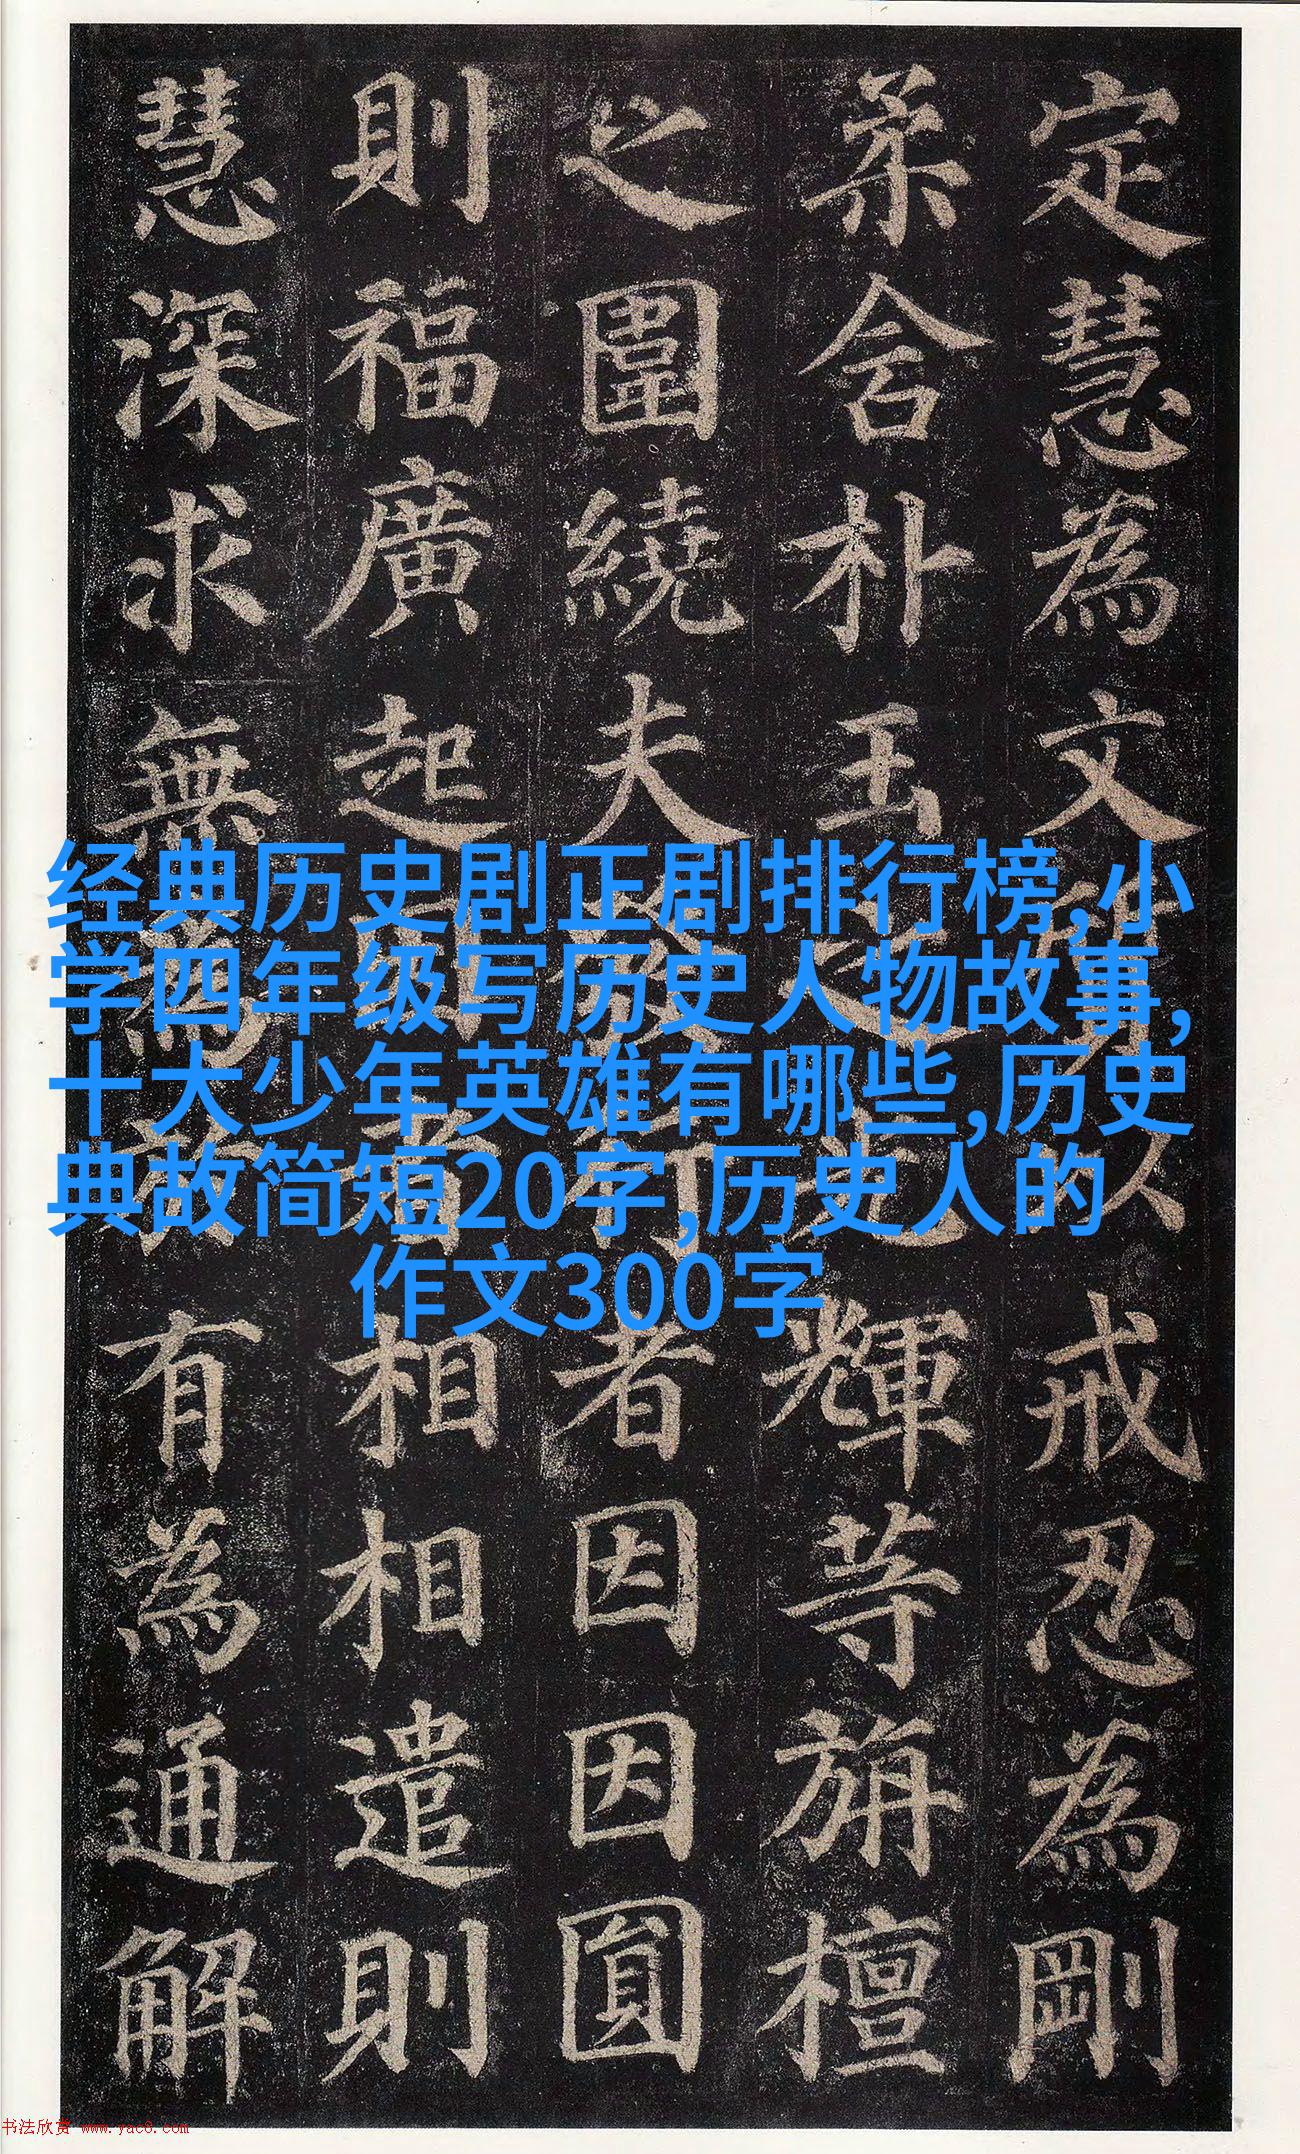 定慧為文質以戒忍為剛
柔含朴玉之光輝等旃檀
之圍繞夫發行者因因圓
則福廣起因者相相遣則
慧深求無為於有為通解
经典历史剧正剧排行榜,小
学四年级写历史人物故事,
十大少年英雄有哪些,历史
典故简短20字,历史人的
作文300字
书法欣赏 www.yac8.com